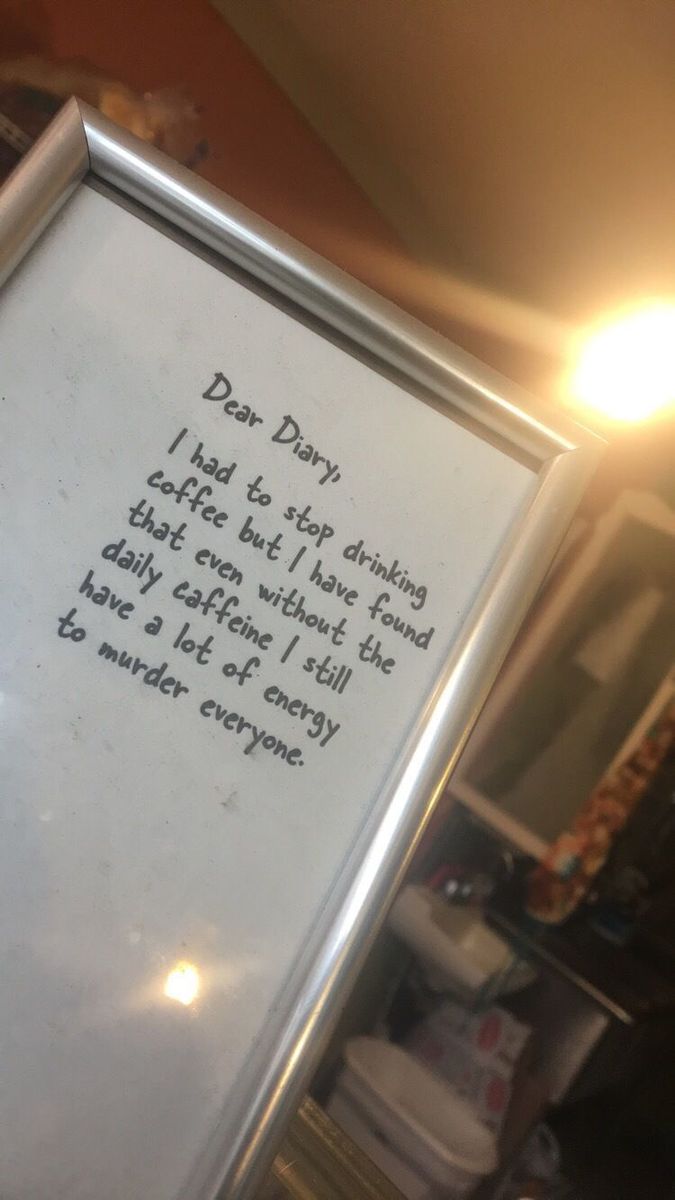 Dear Diary,
I had to stop drinking
coffee but I have found
that even without the
daily caffeine I still
have a lot of energy
to murder everyone.